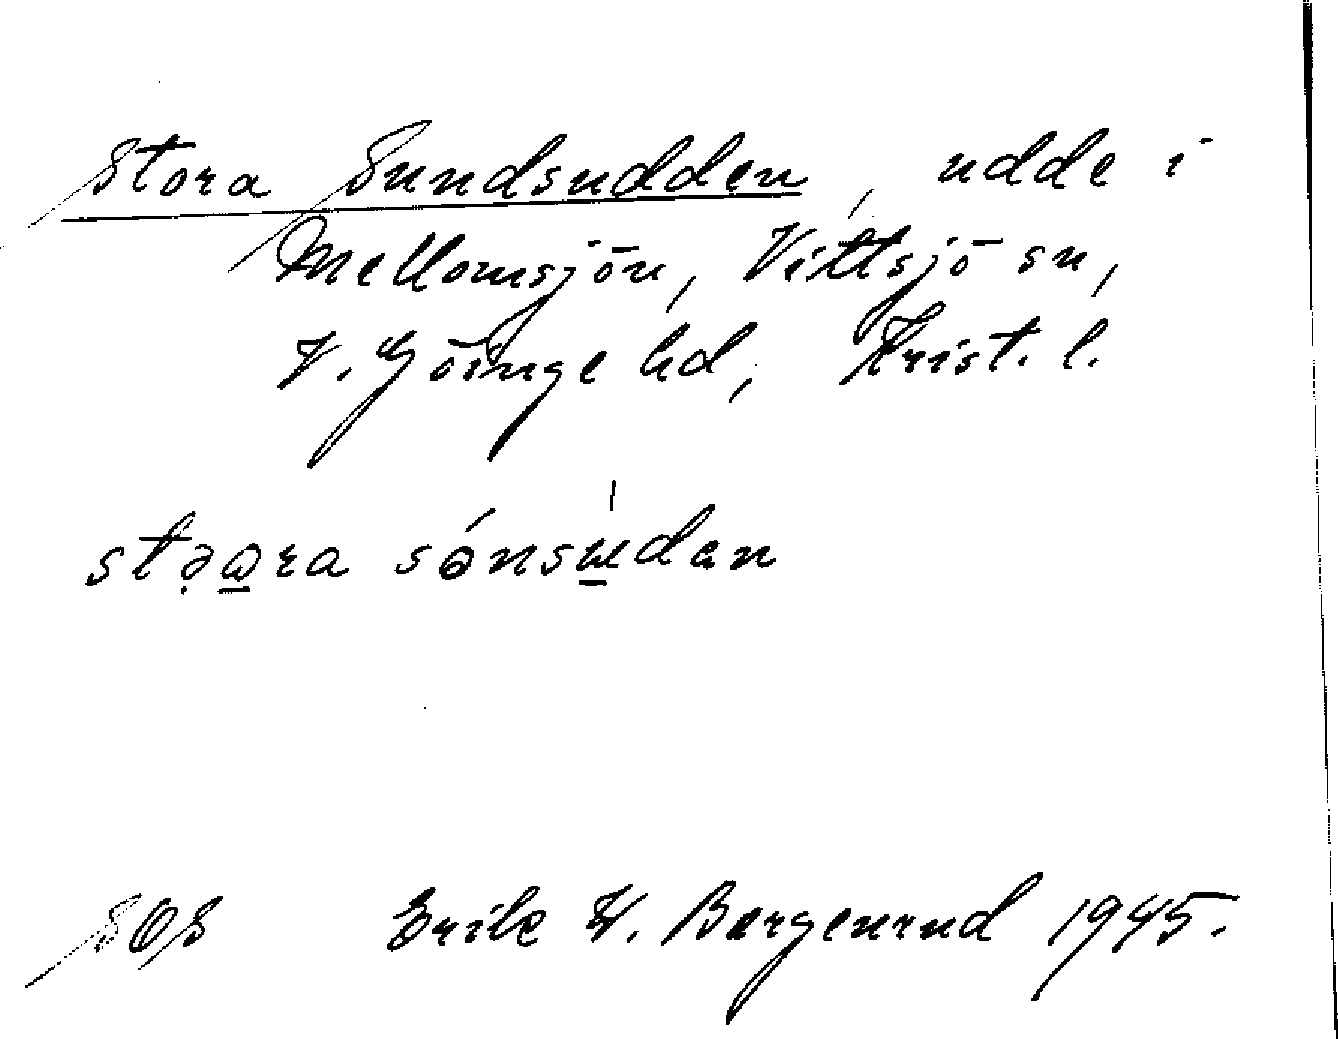 Stora Sundsudden, udde i
Mellomsjön, Vittsjö sn,
V. Göinge hd, Krist. l.
stə̣a̱ra sə́nsɯ̱́dan
SOS Erik W. Bergenrud 1945.